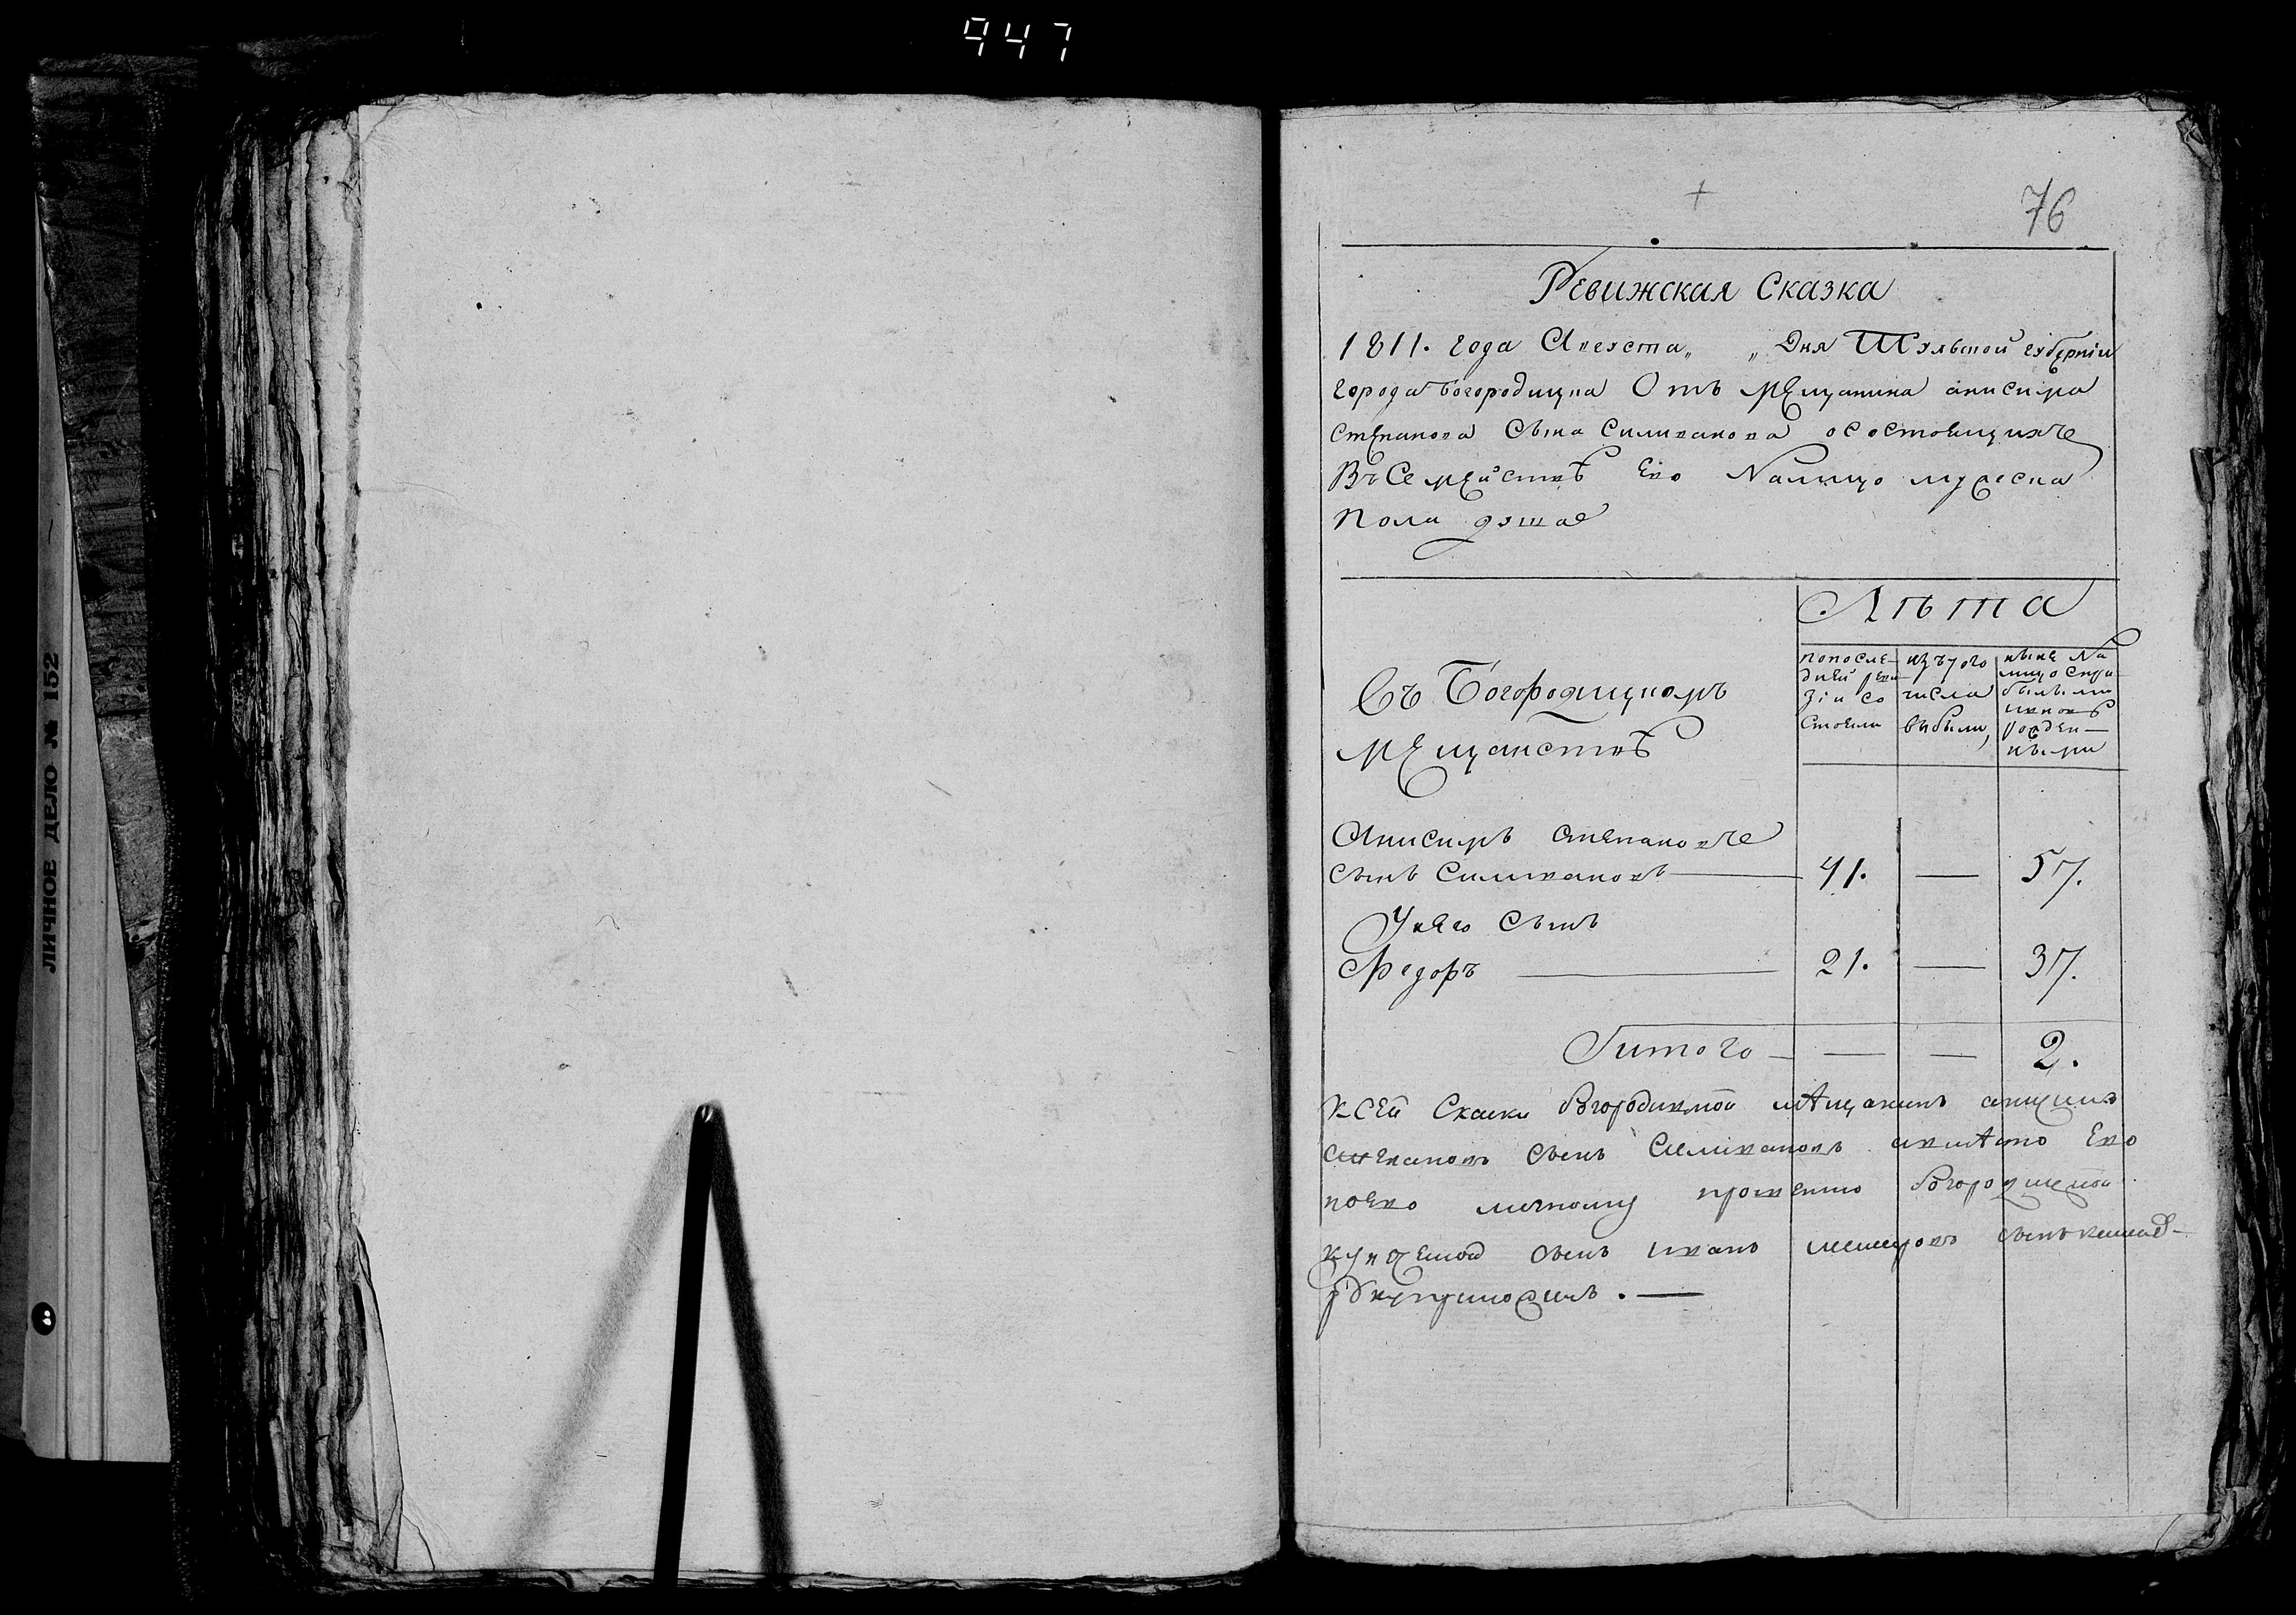 947
ЛИЧНОЕ ДЕЛО № 152
76
Ревижская Сказка
1811. года Августа „ „ Дня Тульской губерніи
города Богородицка Отъ мещанина анисима
степанова сына Силиванова о состоящихъ
Въ Семействѣ Ево Налицо мужеска
пола душах
Лѣта
Въ Богородицкомъ
мещанствѣ
попосле-
дней реви-
зіи со
стояли
изъ того
числа
выбыли,
ныне На
лицо спри
былыми
вновѣ
рожден-
ными
Анисимъ степановъ
сынъ Силивановъ 41. — 57.
У него сынъ
Федоръ 21. — 37.
Итого — — — 2.
К сей Скаски богородицкой мещанинъ анисимъ
степановъ сынъ Силивановъ авместо Ево
поево личному прошению богородицкой
купецкой сынъ иванъ сынъ
руку приложилъ . —